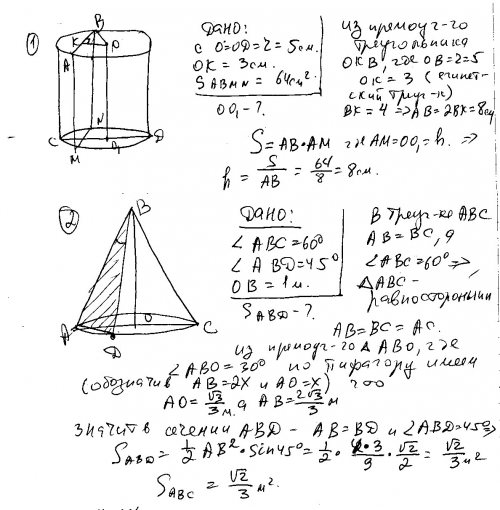 1
ДАНО:
CO=OD=r=5см.
OK=3см.
S ABMN = 64см².
OO₁-?
из прямоуг-го
треугольника
OKB, где OB=r=5
OK=3 (египет-
ский треуг-к)
BK=4 => AB=2BK=8см
S=AB·AM где AM=OO₁=h. =>
h = S/AB = 64/8 = 8см.
B
K
O
A
N
C
D
M
O₁
2
ДАНО:
∠ABC=60°
∠ABD=45°
OB=1м.
S ABD-?
В треуг-ке ABC
AB=BC, а
∠ABC=60° =>,
△ABC-
равносторонний
AB=BC=AC.
из прямоуг-го △ABO, где
∠ABO=30° по пифагору имеем
(обозначив AB=2X и AO=X) что
AO=√3/3 м. а AB=2√3/3 м
значит в сечении ABD - AB=BD и ∠ABD=45° =>
S ABD = 1/2 AB²·sin45° = 1/2 · 4·3/9 · √2/2 = √2/3 м²
S ABC = √2/3 м².
B
A
O
C
D